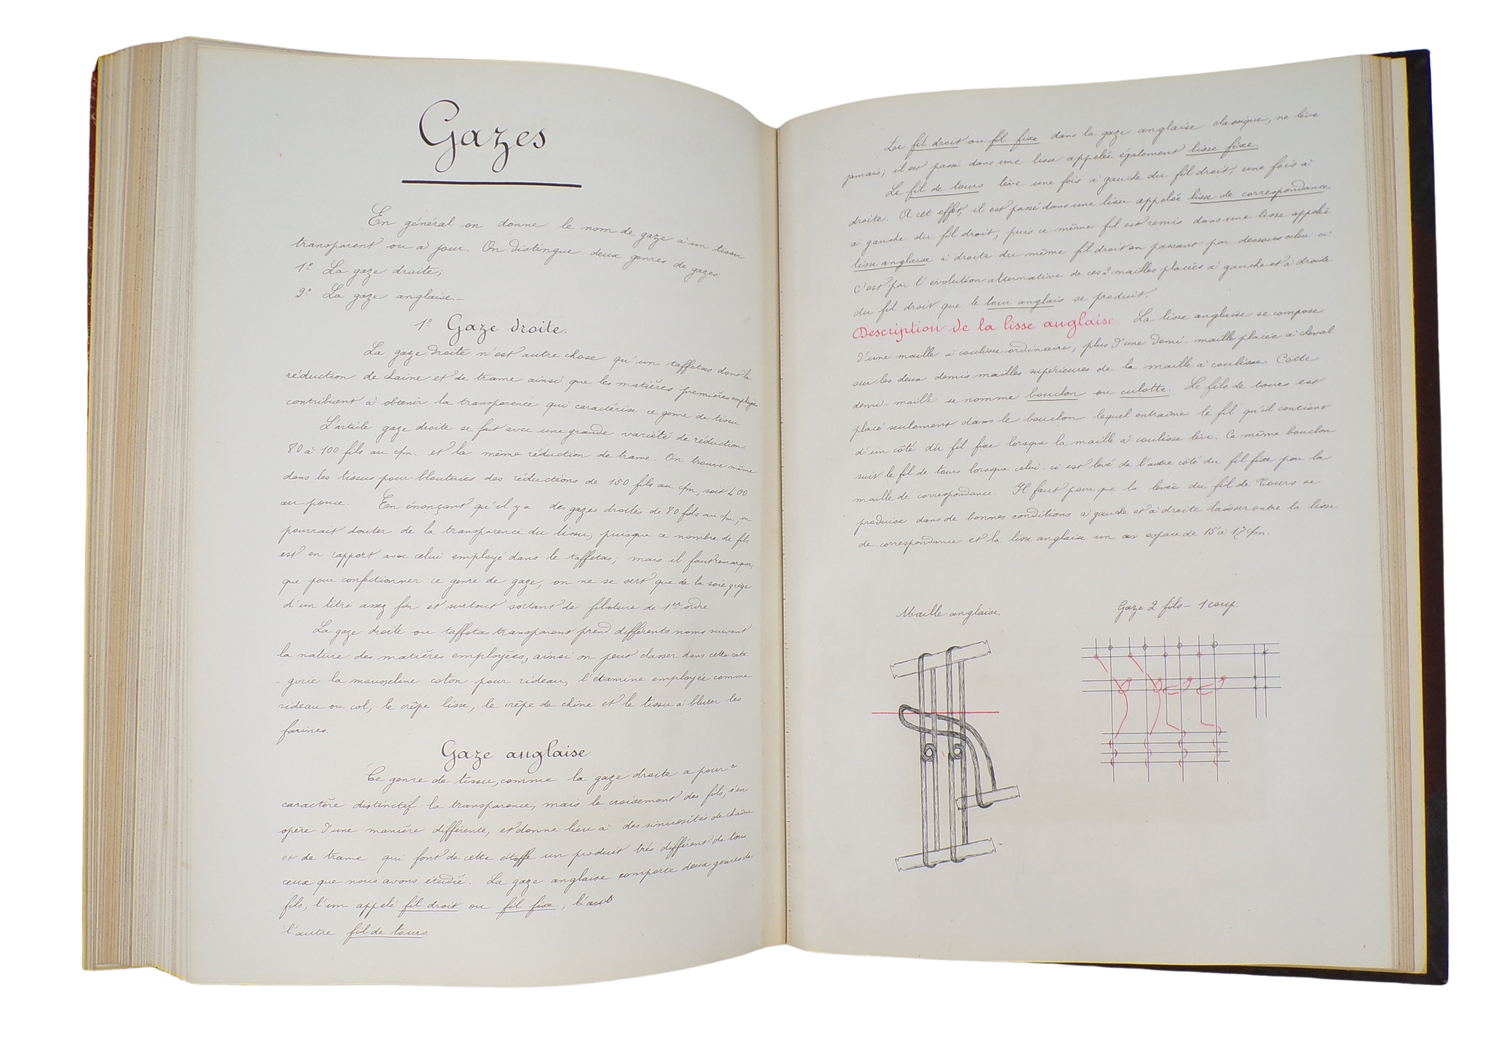 Gazes
En général on donne le nom de gaze à un tissu
transparent ou à jour. On distingue deux genres de gazes
1° La gaze droite;
2° La gaze anglaise.
1° Gaze droite.
La gaze droite n'est autre chose qu'un taffetas dont la
réduction de chaine et de trame ainsi que les matières premières employées
contribuent à obtenir la transparence qui caractérise ce genre de tissu
L'article gaze droite se fait avec une grande variété de réduction
80 à 100 fils au c/m. et la même réduction de trame. On trouve même
dans les tissus pour bluteries des réductions de 150 fils au c/m, soit 400
au pouce. En énonçant qu'il y a des gazes droites de 80 fils au c/m, on
pourrait douter de la transparence du tissu, puisque ce nombre de fils
est en rapport avec celui employé dans le taffetas, mais il faut remarquer
que pour confectionner ce genre de gaze, on ne se sert que de la soie grège
d'un titre assez fin et surtout sortant de filature de 1er ordre
La gaze droite ou taffetas transparent prend différents noms suivant
la nature des matières employées, ainsi on peut classer dans cette caté
-gorie la mousseline coton pour rideau, l'étamine employée comme
rideau ou col, le crêpe lisse, le crêpe de chine et le tissu à bluter les
farines.
Gaze anglaise
Ce genre de tissu, comme la gaze droite a pour
caractère distinctif la transparence, mais le croisement des fils, s'en
opère d'une manière différente, et donne lieu à des sinuosités de chaîne
et de trame qui font de cette étoffe un produit très différent de tous
ceux que nous avons étudié. La gaze anglaise comporte deux genres de
fils, l'un appelé fil droit ou fil fixe,
l'autre fil de tours
Le fil droit ou fil fixe dans la gaze anglaise classique, ne lève
jamais; il est passé dans une lisse appelée également lisse fixe.
Le fil de tours lève une fois à gauche du fil droit, une fois à
droite. A cet effet, il est passé dans une lisse appelée lisse de correspondance
à gauche du fil droit, puis ce même fil est remis dans une lisse appelée
lisse anglaise à droite du même fil droit en passant par dessous celui-ci
C'est par l'évolution alternative de ces 2 mailles placées à gauche et à droite
du fil droit que le tour anglais se produit.
Description de la lisse anglaise. La lisse anglaise se compose
d'une maille à coulisse ordinaire, plus d'une demi-maille placée à cheval
sur les deux demis mailles supérieures de la maille à coulisse. Cette
demi-maille se nomme bouclon ou culotte. Le fils de tours est
placé seulement dans le bouclon lequel entraîne le fil qu'il contient
d'un côté du fil fixe lorsque la maille à coulisse lève. Ce même bouclon
suit le fil de tours lorsque celui-ci est levé de l'autre côté du fil fixe par la
maille de correspondance. Il faut pour que la levée du fil de tours se
produise dans de bonnes conditions à gauche et à droite laisser entre la lisse
de correspondance et la lisse anglaise un espace de 15 à 17 c/m.
Maille anglaise.
Gaze 2 fils - 1 coup.